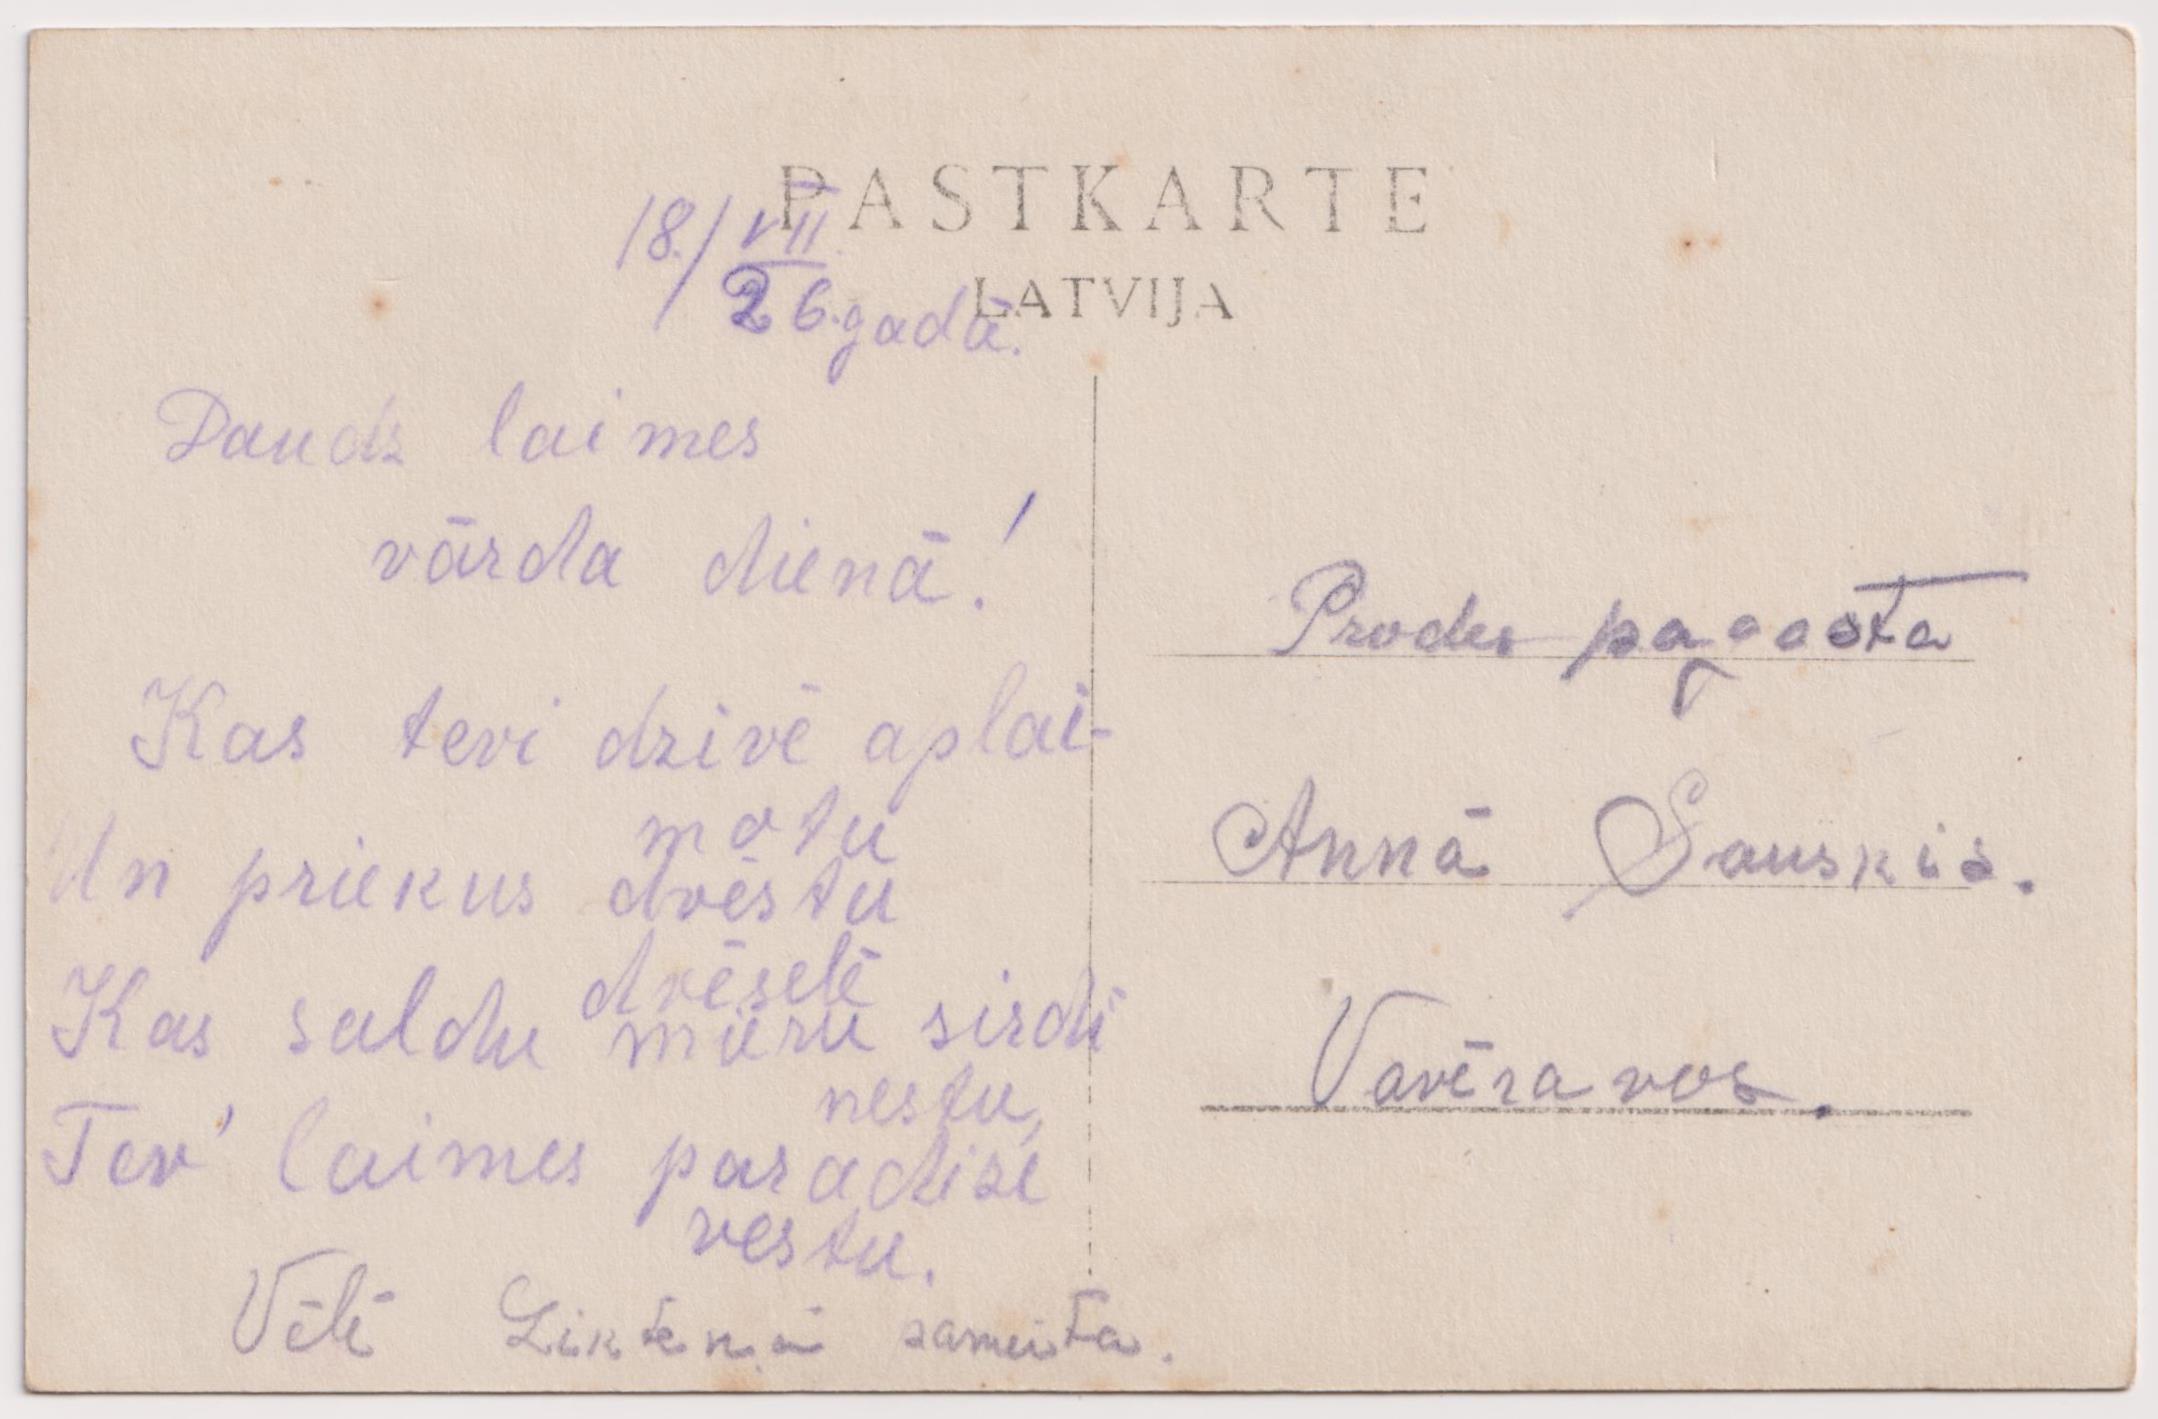 PASTKARTE
LATVIJA
18./VII
26. gadā.
Daudz laimes
vārda dienā!
Kas tevi dzīvē aplai-
motu
Un priekus dvēstu
dvēselē
Kas saldu mūru sirdī
nestu,
Tev' laimes paradizē
vestu.
Vēlē Likteņā sameita.
Prodes pagasta
Annā Sauskis.
Vavēravos.